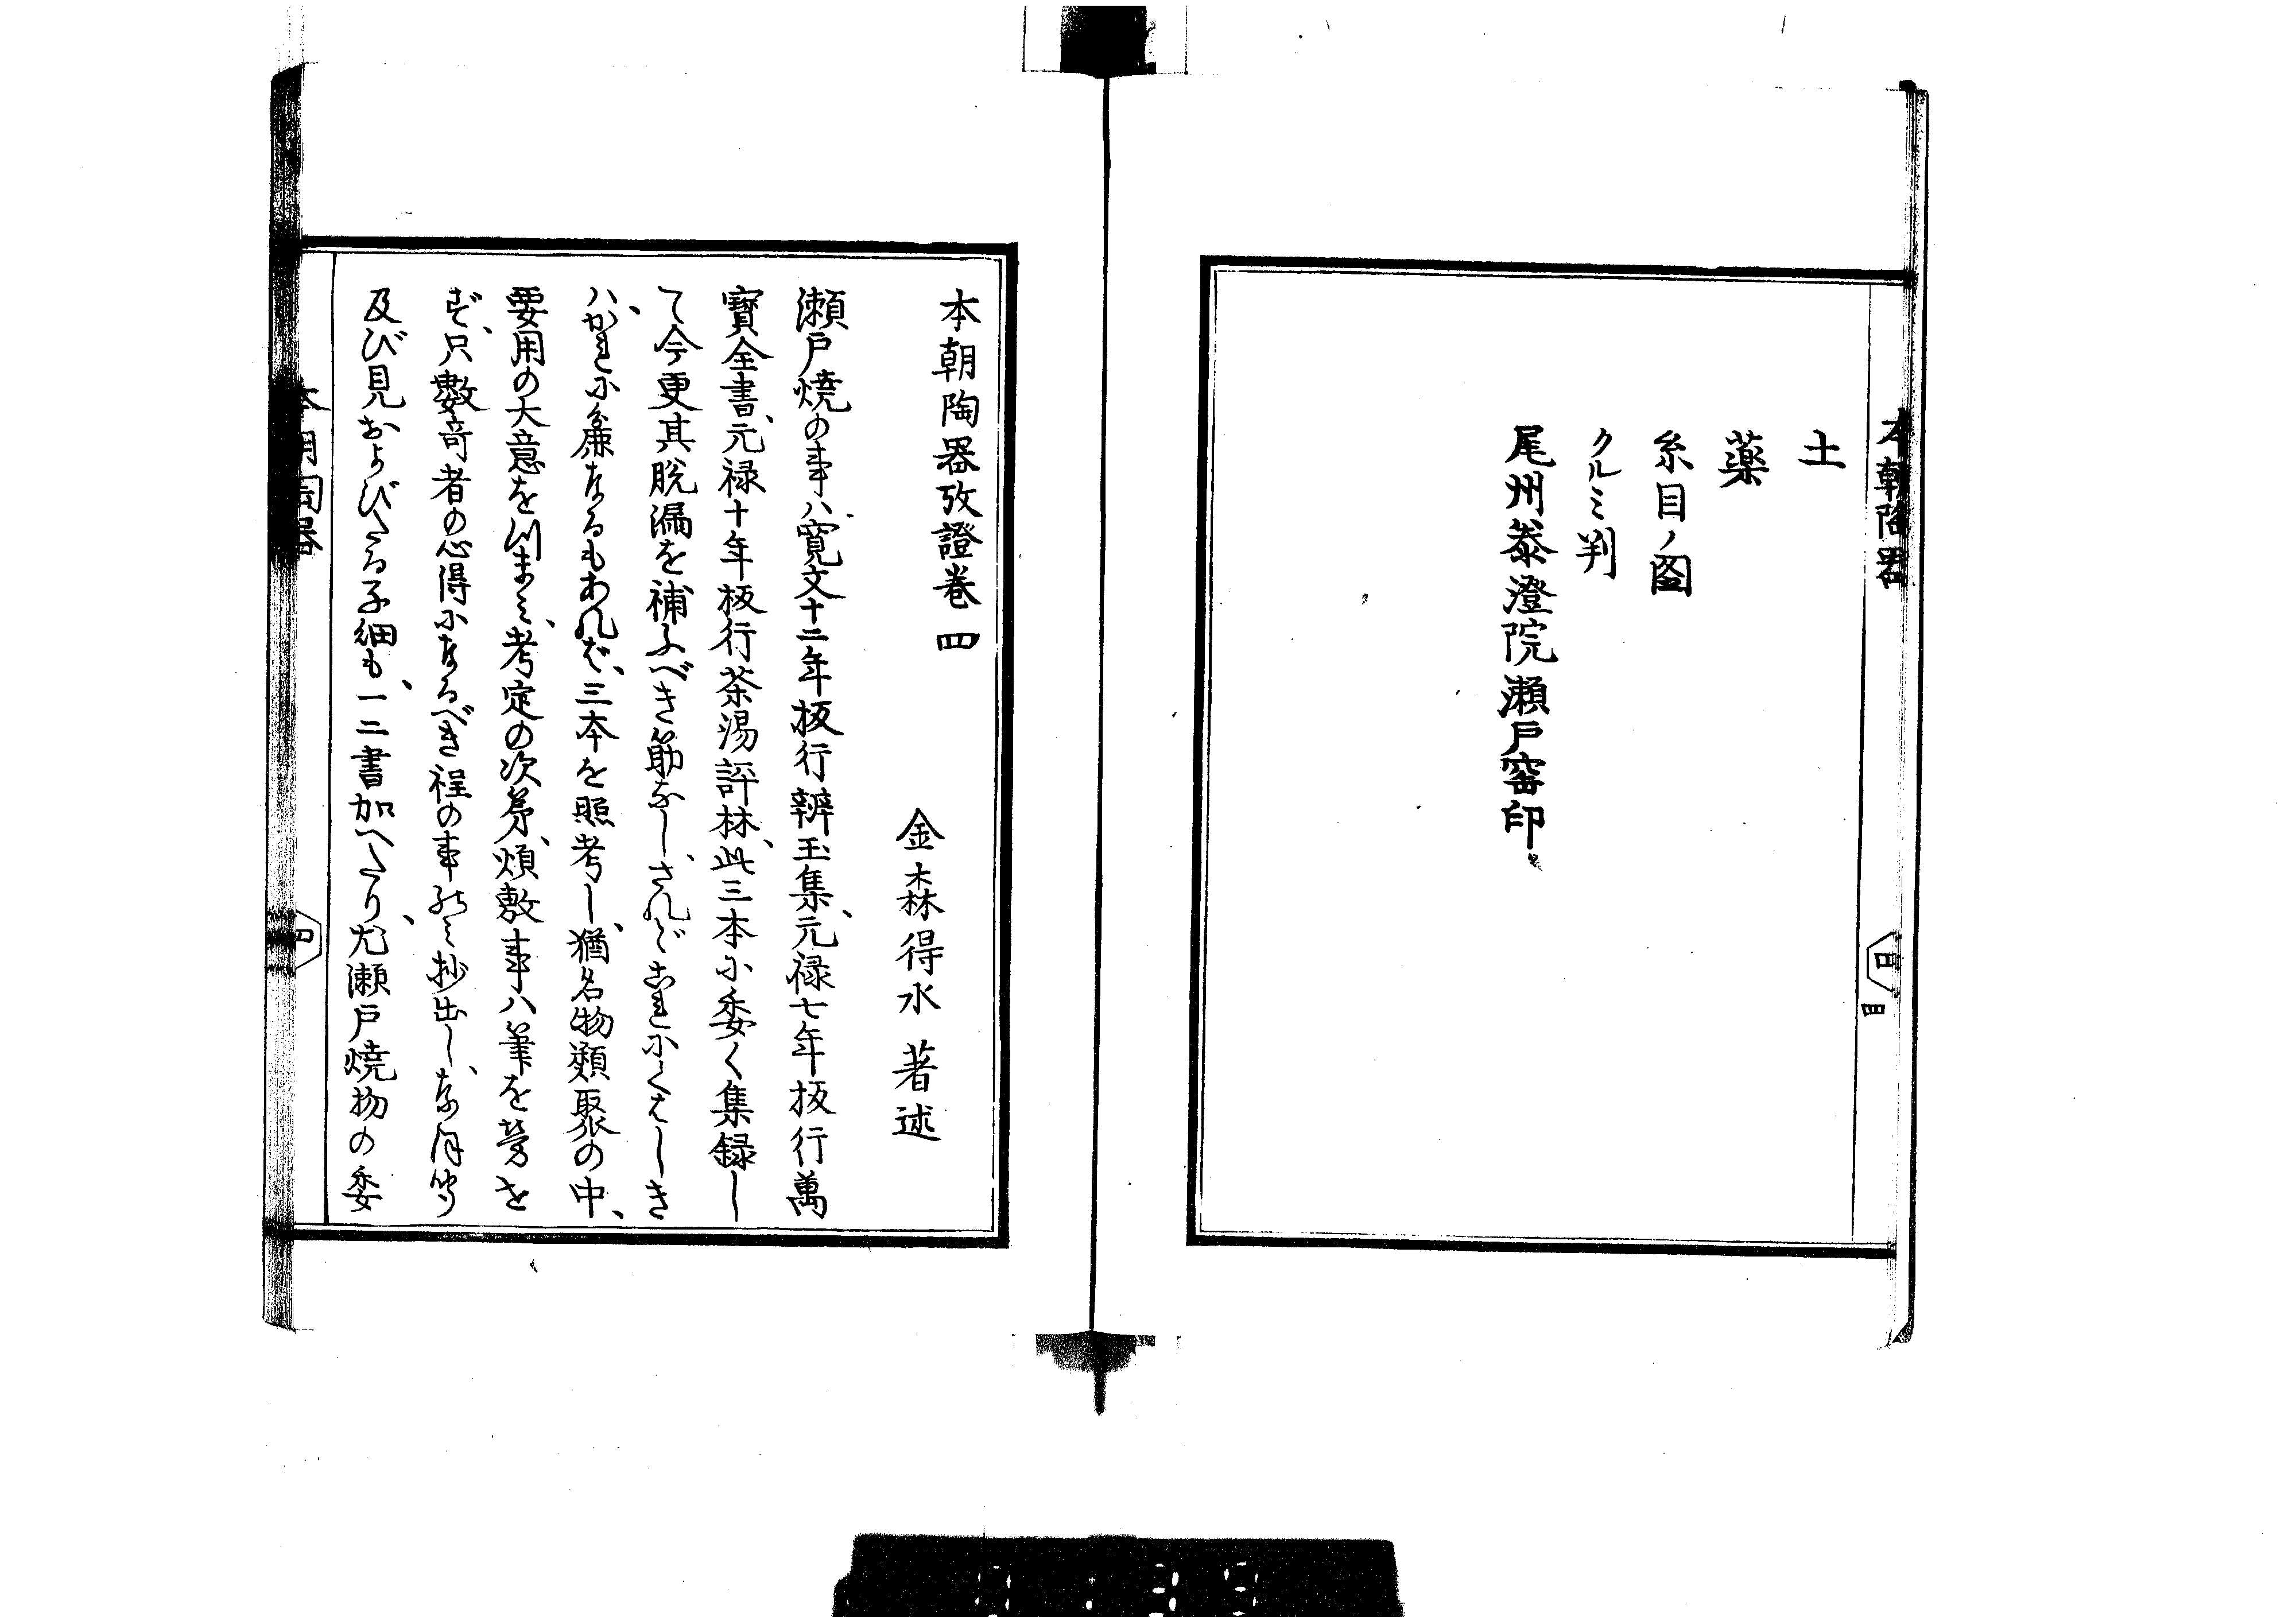 本朝陶器
四
四
土
薬
糸目ノ図
クルミ判
尾州泰澄院瀬戸窯印
本朝陶器攷證巻四
金森得水著述
瀬戸焼の事ハ寛文十二年板行辨玉集、元禄七年板行萬
寶全書、元禄十年板行茶湯評林、此三本小委く集録し
て今更其脱漏を補ふべき筋なし、されどこれにくはしき
ハ、かれに廉なるもあれば、三本を照考し、猶名物類聚の中、
要用の大意をつまミ、考定の次第、煩敷事ハ筆を労せ
ず、只數奇者の心得になるべき程の事のミ抄出し、
及び見およびたる子細も、一二書加へたり、尤瀬戸焼物の委
本朝陶器
四